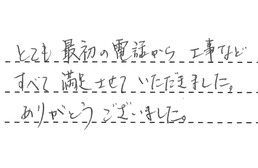 とても 最初の電話から 工事など
すべて 満足させて いただきました。
ありがとう ございました。